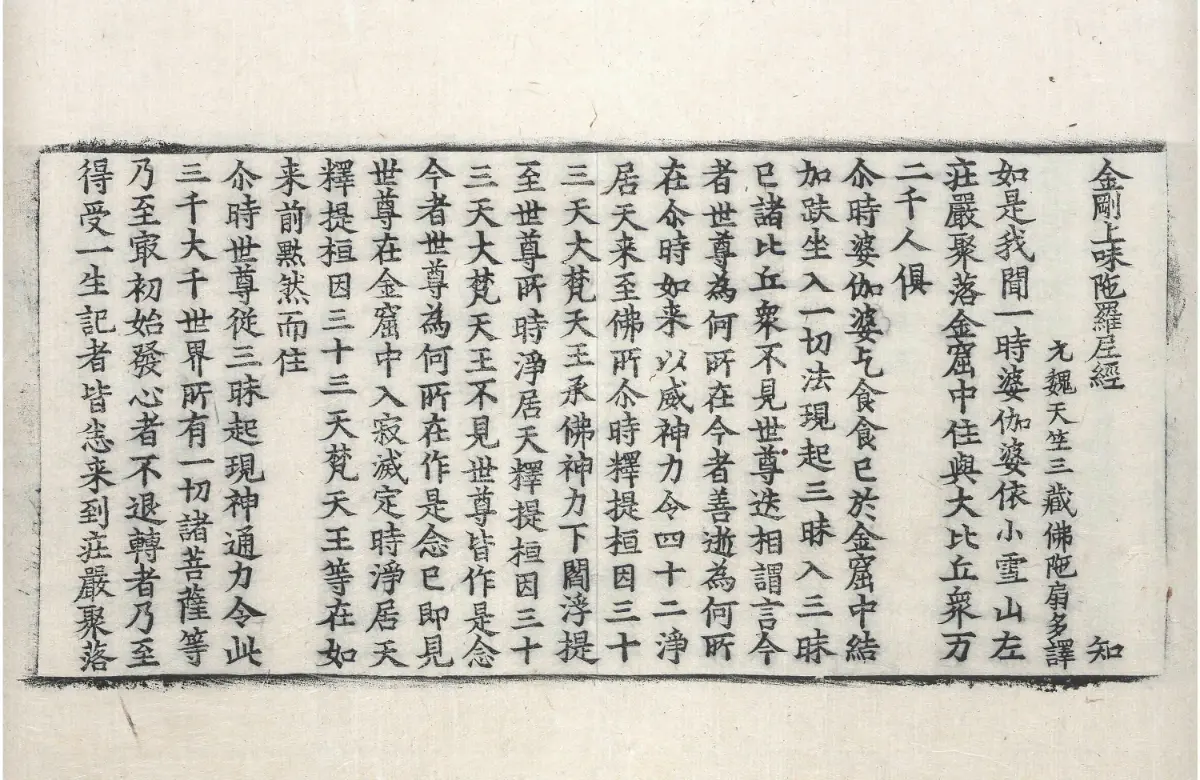 金剛上味陁羅尼經 知
元魏天竺三藏佛陁扇多譯
如是我聞一時婆伽婆依小雪山左
疘嚴聚落金窟中住與大比丘衆万
二千人俱
尒時婆伽婆乞食食已於金窟中結
加趺坐入一切法現起三昧入三昧
已諸比丘衆不見世尊迭相謂言今
者世尊為何所在今者善逝為何所
在尒時如来以威神力令四十二淨
居天来至佛所尒時釋提桓因三十
三天大梵天王承佛神力下閻浮提
至世尊所時淨居天釋提桓因三十
三天大梵天王不見世尊皆作是念
今者世尊為何所在作是念已即見
世尊在金窟中入寂滅定時淨居天
釋提桓因三十三天梵天王等在如
来前黙然而住
尒時世尊從三昧起現神通力令此
三千大千世界所有一切諸菩薩等
乃至㝡初始發心者不退轉者乃至
得受一生記者皆悉来到疘嚴聚落